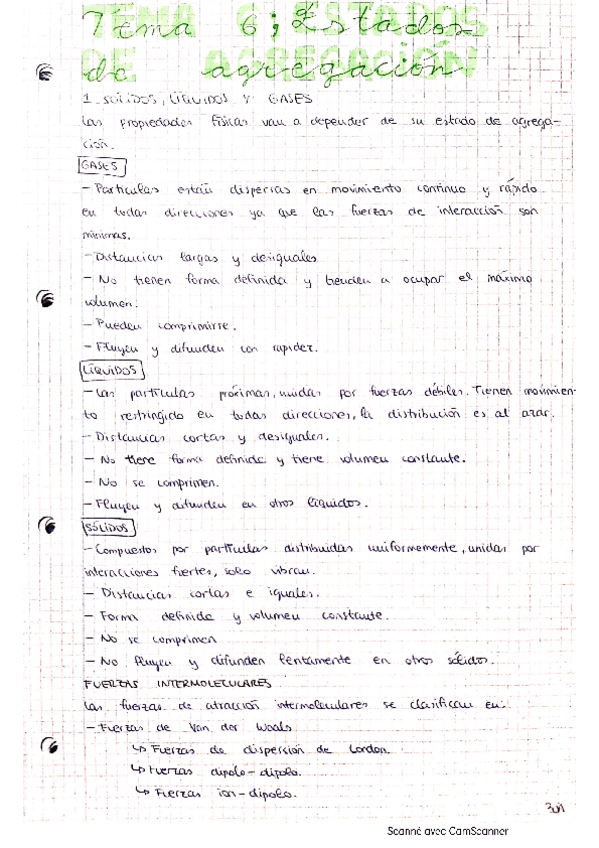 Tema 6; Estados
de agregación
1. SÓLIDOS, LÍQUIDOS Y GASES
Las propiedades físicas van a depender de su estado de agrega-
ción.
GASES
- Partículas están dispersas en movimiento continuo y rápido
en todas direcciones ya que las fuerzas de interacción son
mínimas.
- Distancias largas y desiguales
- No tienen forma definida y tienden a ocupar el máximo
volumen.
- Pueden comprimirse.
- Fluyen y difunden con rapidez.
LÍQUIDOS
- Las partículas próximas, unidas por fuerzas débiles. Tienen movimien-
to restringido en todas direcciones, la distribución es al azar.
- Distancias cortas y desiguales.
- No tiene forma definida y tiene volumen constante.
- No se comprimen.
- Fluyen y difunden en otros líquidos.
SÓLIDOS
- Compuestos por partículas distribuidas uniformemente, unidas por
interacciones fuertes, solo vibran.
- Distancias cortas e iguales.
- Forma definida y volumen constante.
- No se comprimen
- No fluyen y difunden lentamente en otros sólidos.
FUERZAS INTERMOLECULARES
Las fuerzas de atracción intermoleculares se clasifican en:
- Fuerzas de Van der Waals
↳ Fuerzas de dispersión de London.
↳ Fuerzas dipolo-dipolo.
↳ Fuerzas ion-dipolo.
Scanné avec CamScanner